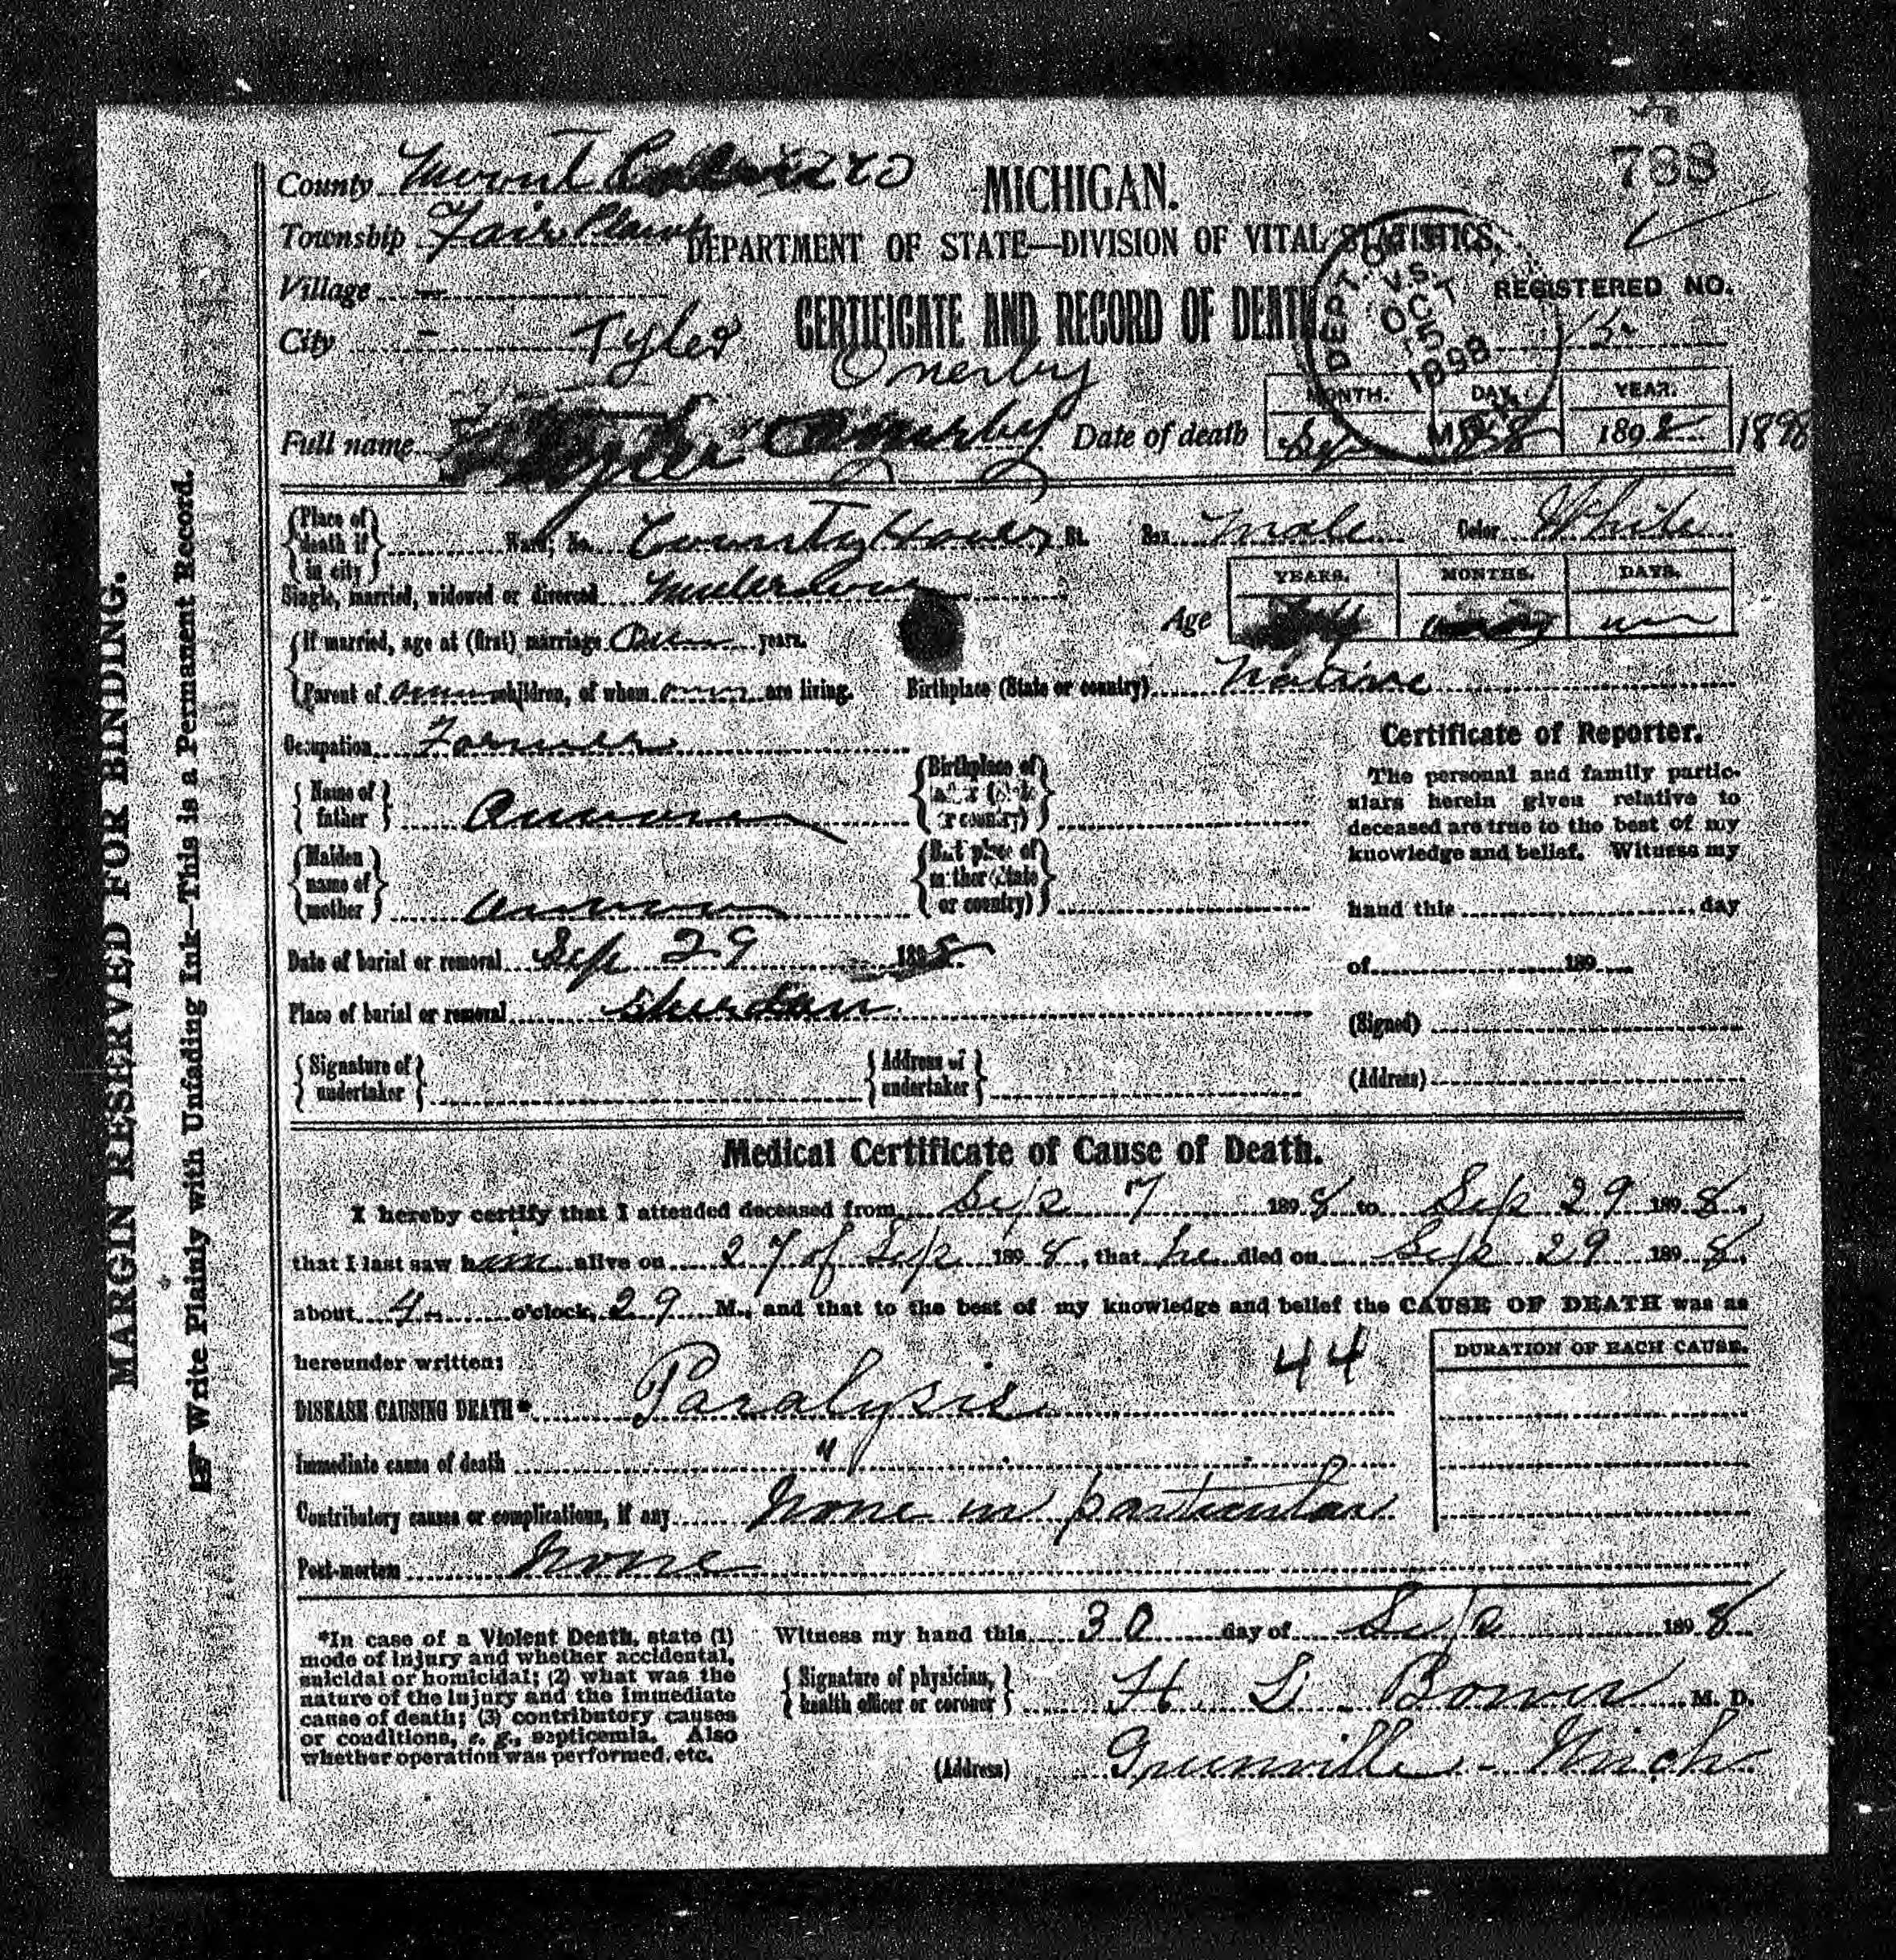 788
County Mont
MICHIGAN.
Township Fair Plains
DEPARTMENT OF STATE—DIVISION OF VITAL STATISTICS.
Village –
REGISTERED NO.
City – Tyler
CERTIFICATE AND RECORD OF DEATH
DEPT. OF V.S. OCT 15 1898 MICH.
Onerby
MONTH. DAY. YEAR.
Full name Tyler Onerby Date of death Sep 28 1898 1898
Place of death if in city Ward, No. County House St. Sex Male Color White
Single, married, widowed or divorced
YEARS. MONTHS. DAYS.
Age
If married, age at (first) marriage years.
Parent of children, of whom are living. Birthplace (State or country) Native
Occupation Farmer
Certificate of Reporter.
Name of father
Birthplace of father (State or country)
The personal and family particulars herein given relative to deceased are true to the best of my knowledge and belief. Witness my
Maiden name of mother
Birthplace of mother (State or country)
hand this day
Date of burial or removal Sep 29 1898
of 189
Place of burial or removal Sheridan
(Signed)
Signature of undertaker Address of undertaker
(Address)
Medical Certificate of Cause of Death.
I hereby certify that I attended deceased from Sep 7 1898 to Sep 29 1898,
that I last saw him alive on 27 of Sep 1898, that he died on Sep 29 1898,
about 4 o'clock, 29 M., and that to the best of my knowledge and belief the CAUSE OF DEATH was as
hereunder written: 44
DURATION OF EACH CAUSE.
DISEASE CAUSING DEATH* Paralysis
Immediate cause of death "
Contributory causes or complications, if any None in particular
Post-mortem None
*In case of a Violent Death, state (1)
mode of injury and whether accidental,
suicidal or homicidal; (2) what was the
nature of the injury and the immediate
cause of death; (3) contributory causes
or conditions, e. g., septicemia. Also
whether operation was performed, etc.
Witness my hand this 30 day of Sep 1898
Signature of physician, health officer or coroner H L Bower M. D.
(Address) Greenville - Mich
MARGIN RESERVED FOR BINDING.
Write Plainly with Unfading Ink—This is a Permanent Record.